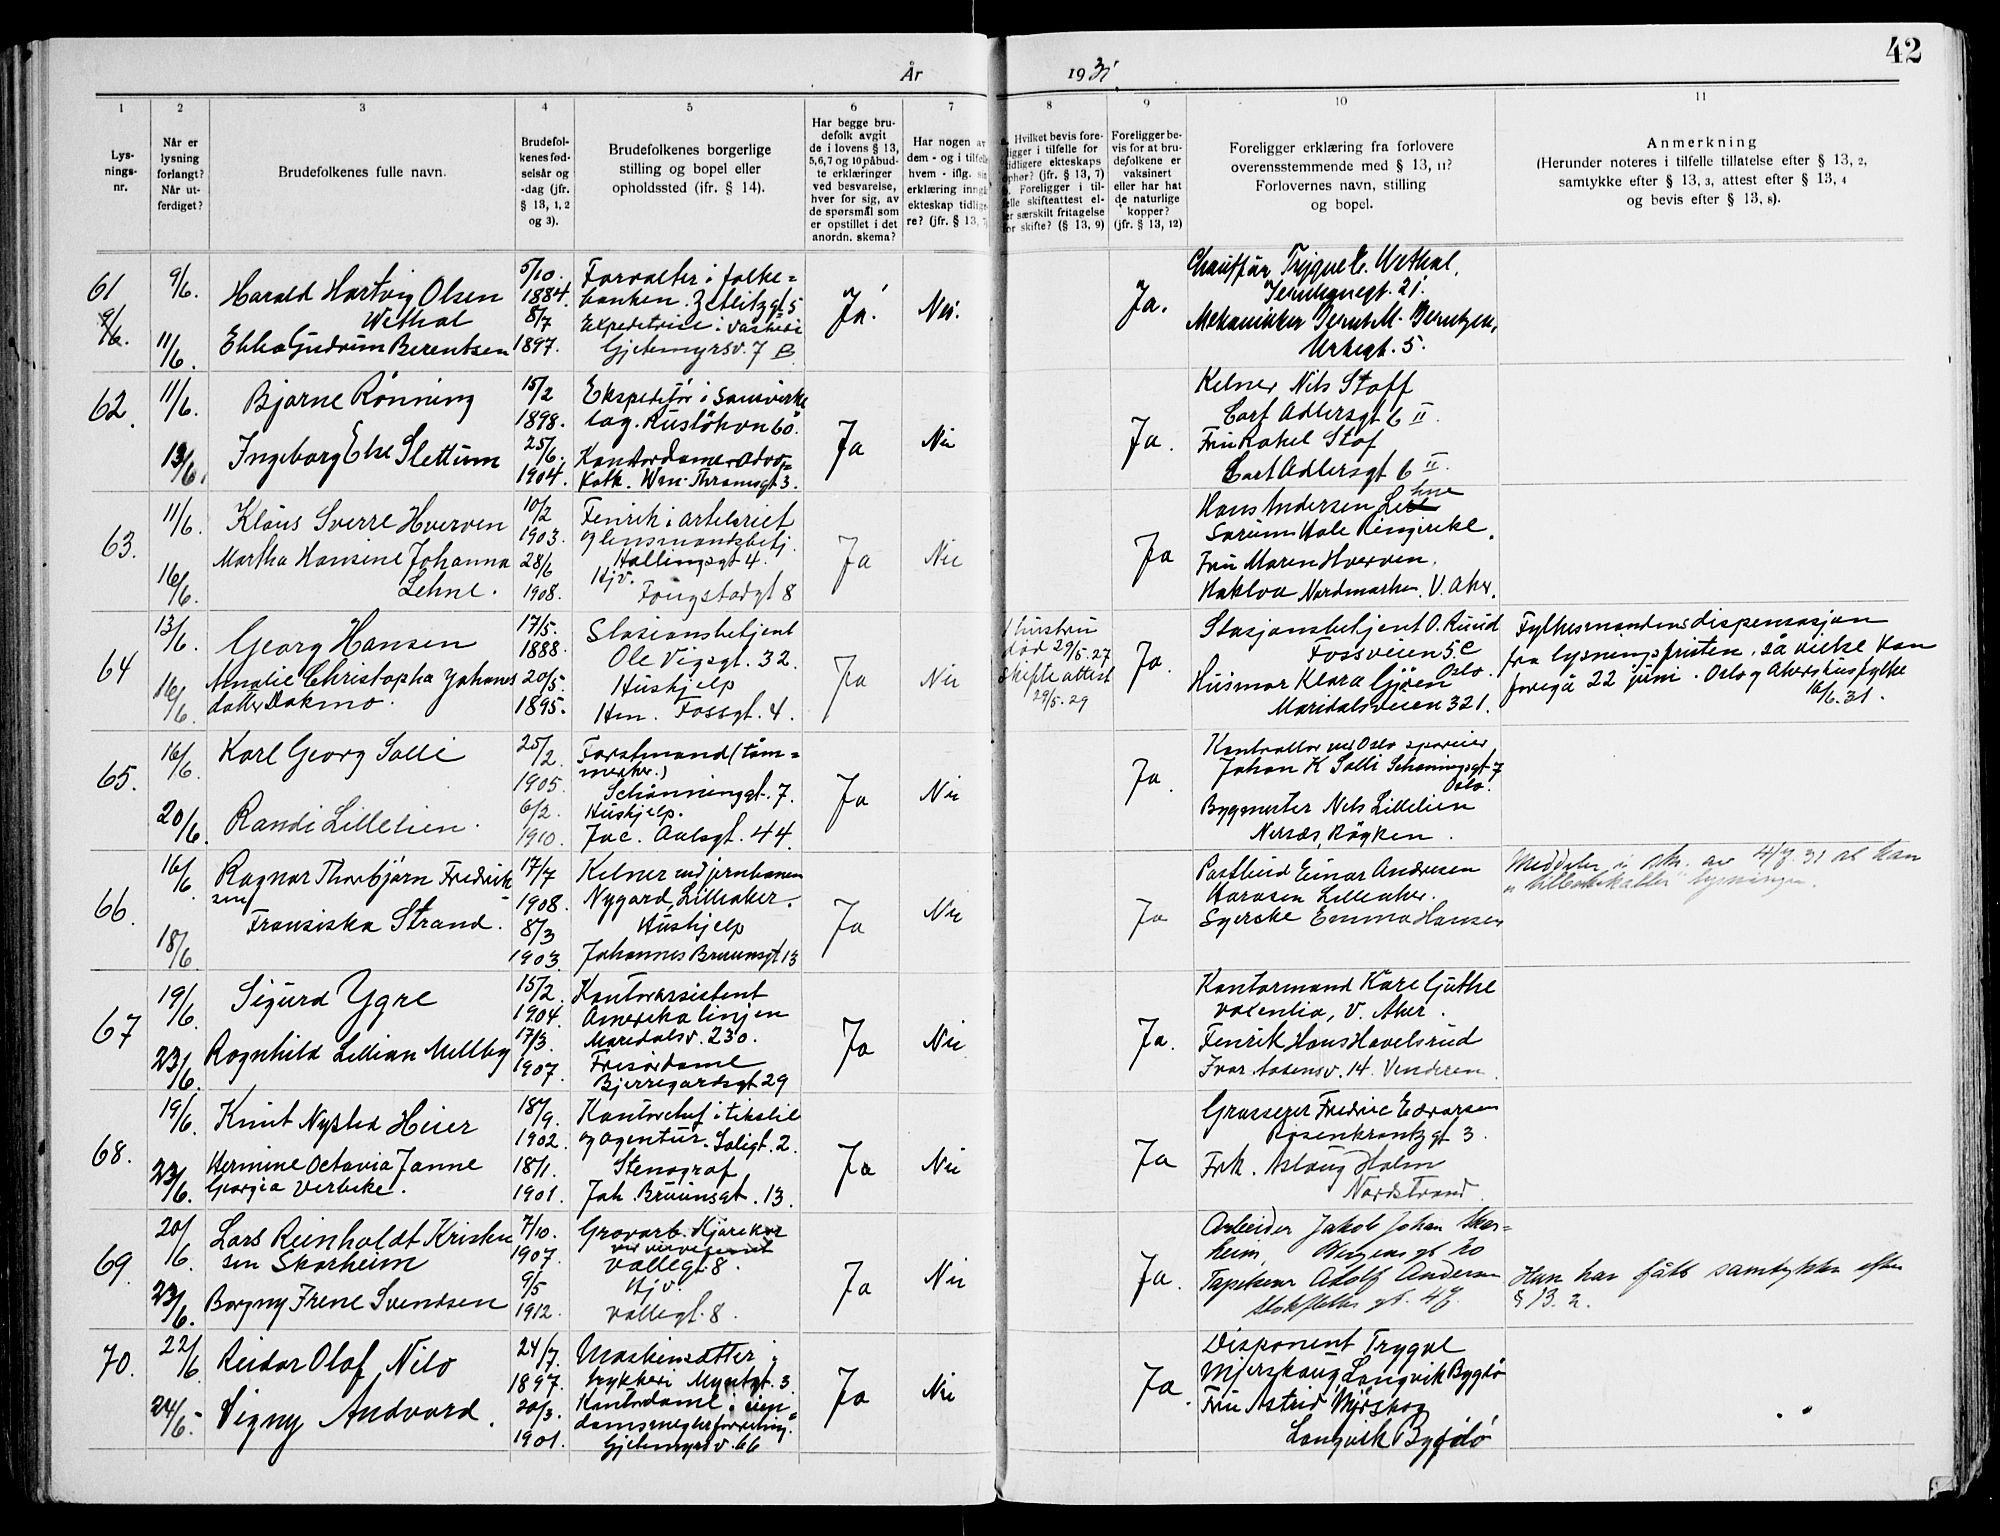 42
År 1931
1 2 3 4 5 6 7 8 9 10 11
Lys-
nings-
nr.
Når er
lysning
forlangt?
Når ut-
ferdiget?
Brudefolkenes fulle navn.
Brudefol-
kenes fød-
selsår og
-dag (jfr.
§ 13, 1, 2
og 3).
Brudefolkenes borgerlige
stilling og bopel eller
opholdssted (jfr. § 14).
Har begge bru-
defolk avgit
de i lovens § 13,
5,6,7 og 10 påbud-
te erklæringer
ved besvarelse,
hver for sig, av
de spørsmål som
er opstillet i det
anordn. skema?
Har nogen av
dem - og i tilfelle
hvem - iflg.
erklæring inngå
ekteskap tidlig
re? (jfr. § 13, 7
Hvilket bevis fore-
ligger i tilfelle for
tidligere ekteskaps
ophør? (jfr. § 13, 7)
Foreligger i til-
elle skifteattest el-
er særskilt fritagelse
or skifte? (§ 13, 9)
Foreligger be-
vis for at bru-
defolkene er
vaksinert
eller har hat
de naturlige
kopper?
(jfr. § 13, 12)
Foreligger erklæring fra forlovere
overensstemmende med § 13, 11?
Forlovernes navn, stilling
og bopel.
Anmerkning
(Herunder noteres i tilfelle tillatelse efter § 13, 2,
samtykke efter § 13, 3, attest efter § 13, 4
og bevis efter § 13, 8).
61
9/6.
9/6.
11/6.
Harald Hartvig Olsen
Wethal
Ebba Gudrun Berentsen
5/10.
1884.
8/7
1897.
Forvalter i folke=
banken. Zetlitzgt 5
Expeditrise i vaskeri
Gjetemyrsv. 7 B
Ja.
Nei.
Ja.
Chauffør Trygve C. Wethal,
21.
Mekaniker Bernt M. Berntzen,
Urtegt. 5.
62.
11/6.
13/6.
Bjarne Rønning
Ingeborg Else Slettum
15/2
1898.
25/6.
1904.
Ekspeditør i Samvirke
lag. Rusløkvn 60.
Kontordame Advo=
katk. Wm. Thranesgt 3.
Ja
Nei
Ja.
Kelner Nils Staff
Carl Adlersgt 6 II.
Fru Rakel Staf
Carl Adlersgt 6 II.
63.
11/6.
16/6.
Klaus Sverre Hverven
Martha Hansine Johanna
Lehne.
10/2
1903.
28/6
1908.
Fenrik i artileriet
og lensmandsbetj.
Hallingsgt 4.
Hjv.
Fougstadgt 8
Ja
Nei
Ja
Hans Andersen Lehne
Sørum Hole Ringerike.
Fru Maren Hverven,
Hakloa Nordmarken. V. Aker.
64
13/6.
16/6.
Georg Hansen
Amalie Christopha Johans
datter Dokmo.
17/5.
1888.
20/5.
1895.
Stasionsbetjent
Ole Vigsgt. 32.
Hushjelp
Hm. Fossgt. 4.
Ja
Nei
hustru
død 29/5.27
Skifteattest
29/5.29
Ja.
Stasjonsbetjent O. Ruud
Fossveien 5 C
Oslo.
Husmor Klara Gjøen
Maridalsveien 321.
Fylkesmandens dispensasjon
fra lysningsfristen, så vielse kan
foregå 22 juni. Oslo og Akershus fylke
16/6.31.
65.
16/6.
20/6.
Karl Georg Solli
Randi Lillelien.
25/2.
1905.
6/2.
1910.
Forstmand (tøm=
merker.)
Schønninggt. 7.
Hushjelp.
Jac. Aalsgt. 44.
Ja
Nei
Ja.
Kontrollør ved Oslo sporveier
Johan K Solli Schøningsgt 7
Oslo.
Bygmester Nils Lillelien
Nersæs, Røyken.
66.
16/6
18/6.
Ragnar Thorbjørn Fredrik-
sen
Fransiska Strand.
17/7
1908.
8/3
1903.
Kelner ved jernbanen
Nygard, Lilleaker.
Hushjelp
Johannes Bruunsgt 13
Ja
Nei
Ja
Postbud Einar Andresen
Harasen Lilleaker.
Syerske Emma Hansen
Meddeler i skr. av 4/7.31 at han
"tilbakekaller" lysningen.
67
19/6.
23/6.
Sigurd Ygre
Ragnhild Lillian Mellby
15/2.
1904.
17/3.
1907.
Kontorassistent
Amerika linjen
Maridalsv. 230.
Frisørdame
Bjerregaardsgt 29
Ja
Nei
Ja.
Kontormand Kåre Guthe
Valentia, V. Aker.
Fenrik Hans Havelsrud
Ivar Aasensv. 14. Venderen.
68.
19/6.
23/6.
Knut Nysted Heier
Hermine Octavia Janne
Georgia Verbeke.
18/9.
1902.
18/1.
1901.
Kontorchef i tekstil
og agentur. Soligt. 2.
Stenograf
Joh. Bruunsgt. 13.
Ja
Nei
Ja
Grosserer Fredric Edvarsen
Rosenkrantzgt 3.
Frk. Aslaug Holm
Nordstrand.
69.
20/6.
23/6.
Lars Reinholdt Kristen
sen Skarheim
Borgny Irene Svendsen
7/10.
1907.
9/5
1912.
Gravarb.
Vallegt. 8.
Hjv.
Vallegt. 8.
Ja
Nei
Ja.
Arbeider Jakob Johan Skar=
heim, Bergensgt 20
Tapetserer Adolf Andersen
gt. 47.
Hun har fått samtykke efter
§ 13. 2.
70.
22/6.
24/6.
Reidar Olaf Nilo
Vigny Andvord.
24/7.
1897.
20/3.
1901.
Maskinsætter i
trykkeri Myntgt. 3.
Kontordame i eien
domsmeglerforretning.
Gjetemyrsv. 66
Ja
Nei
Ja.
Disponent Trygve
Mjørskaug, Langvik Bygdø
Fru Astrid Mjørskog
Langvik Bygdø